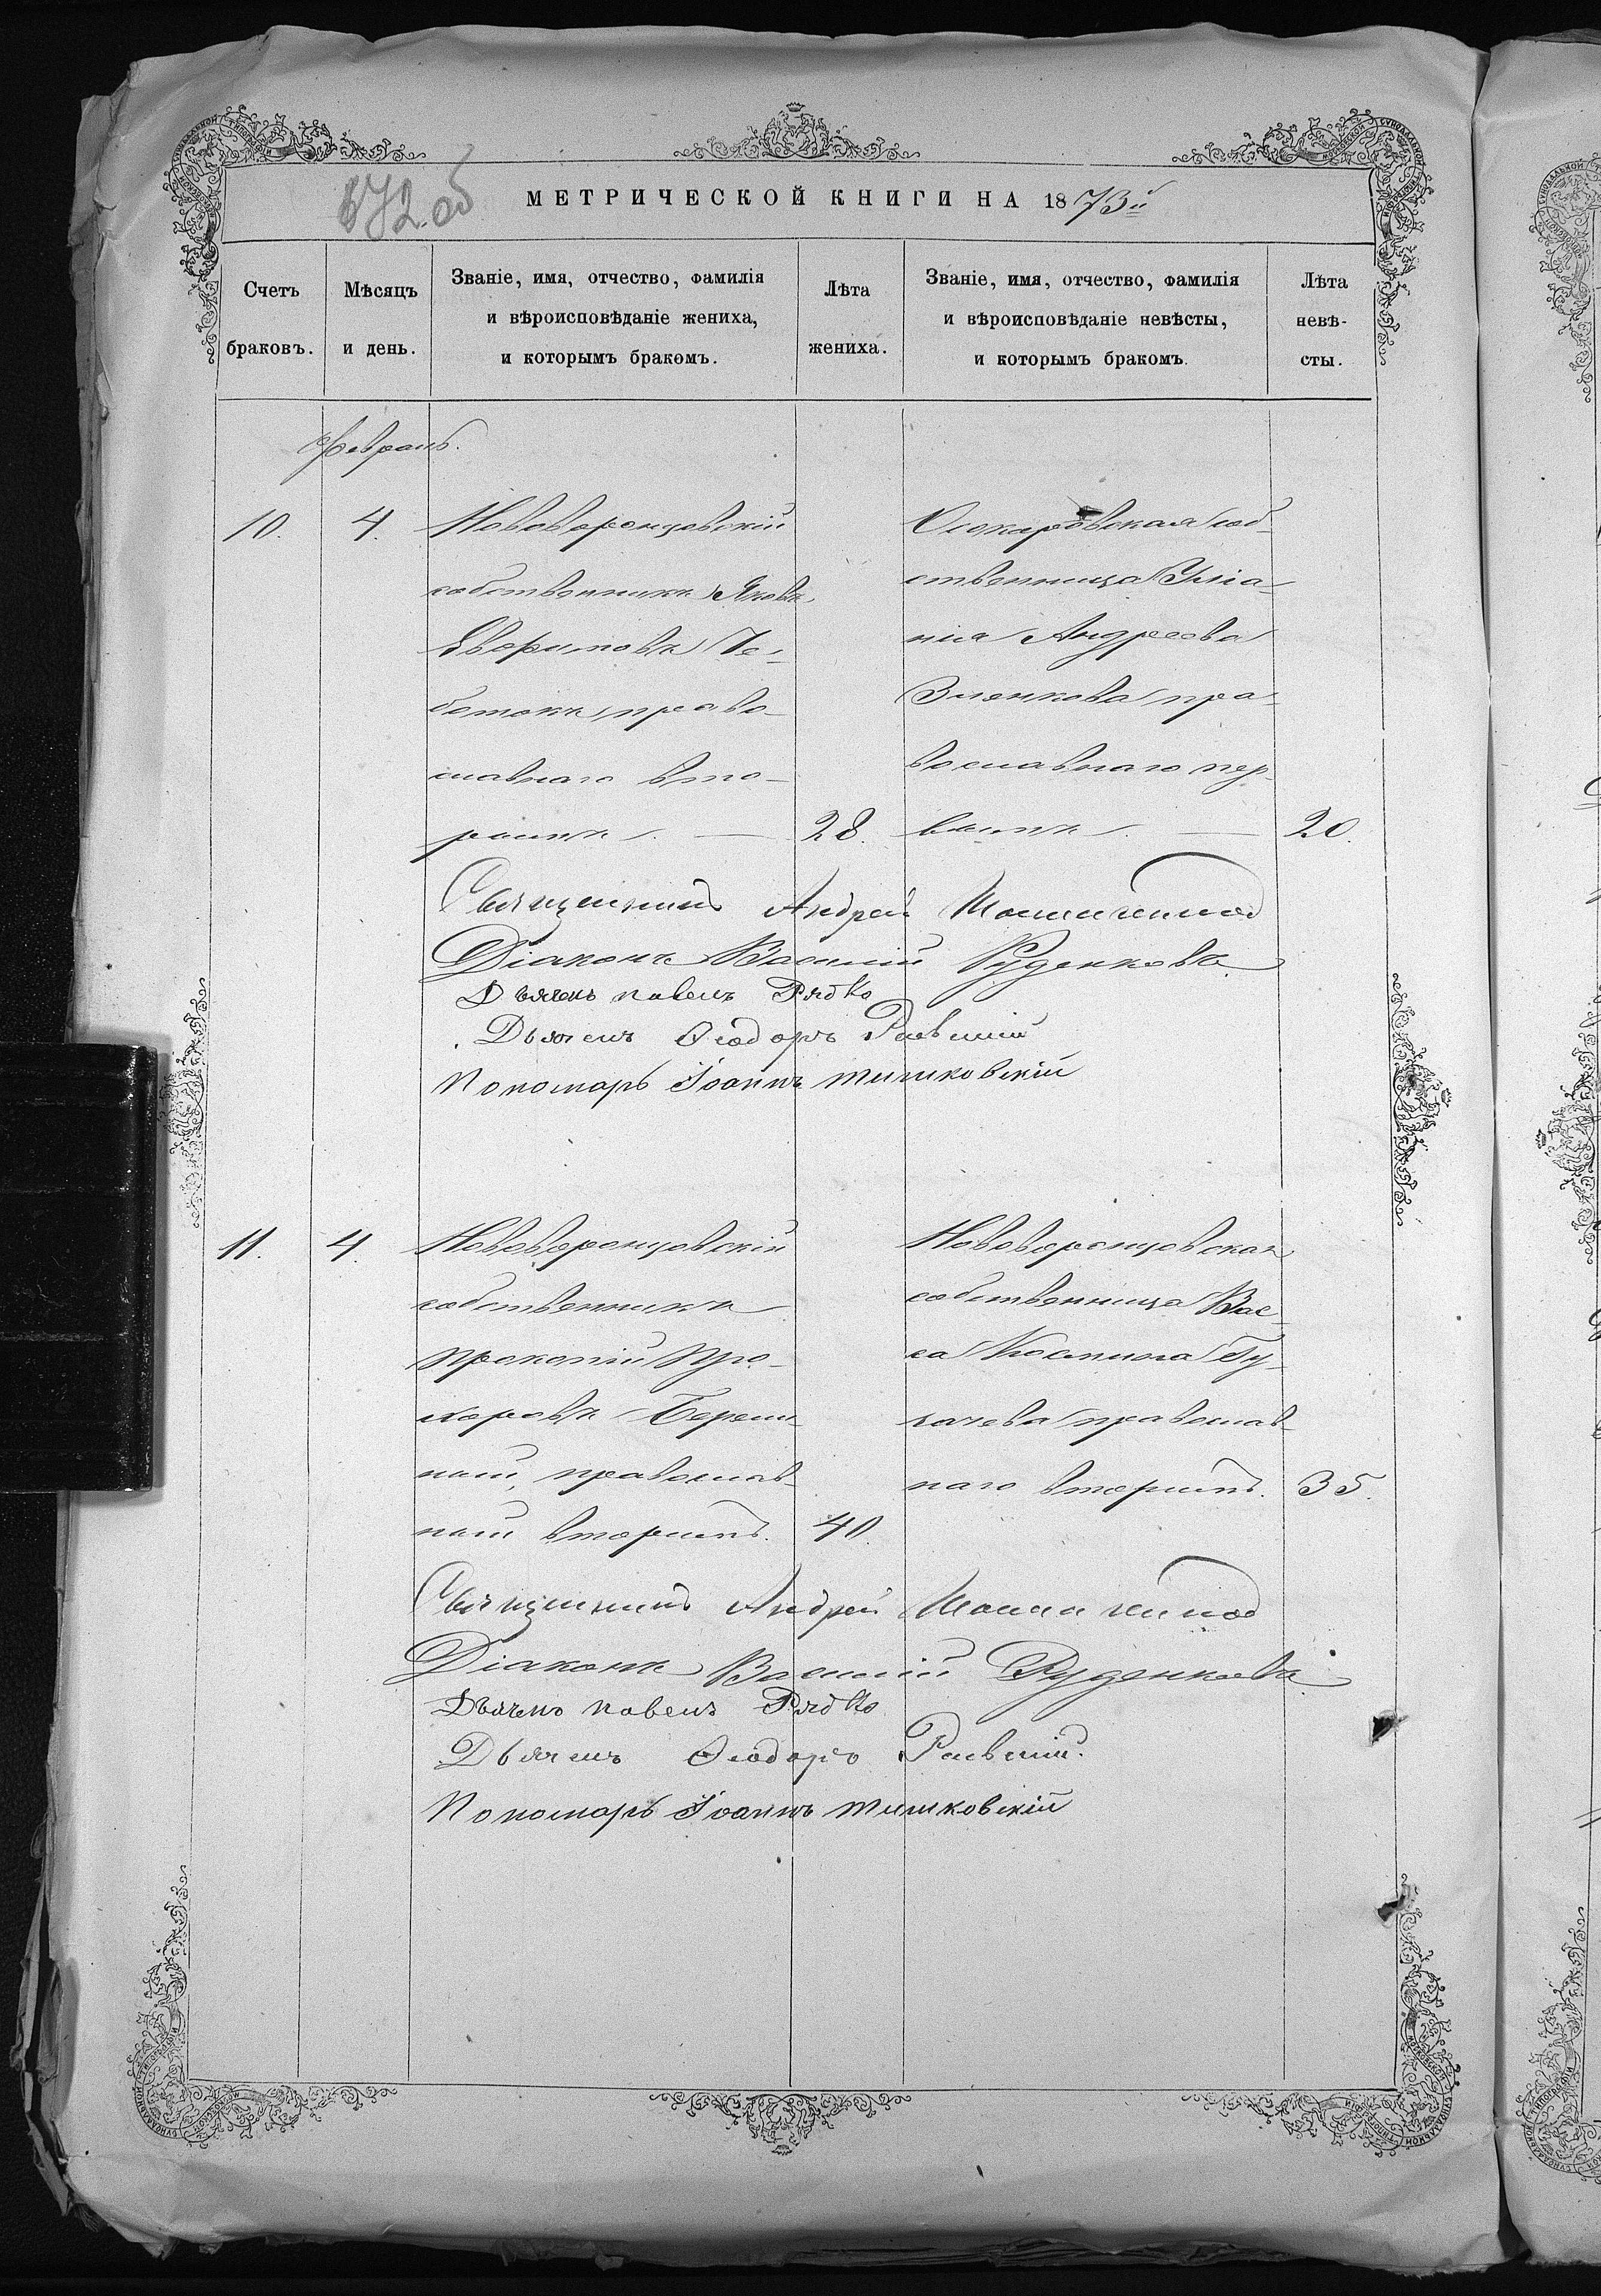 672 об
МЕТРИЧЕСКОЙ КНИГИ НА 1873й
Счетъ браковъ.
Мѣсяцъ и день.
Званіе, имя, отчество, фамилія
и вѣроисповѣданіе жениха,
и которымъ бракомъ.
Лѣта жениха.
Званіе, имя, отчество, фамилія
и вѣроисповѣданіе невѣсты,
и которымъ бракомъ.
Лѣта невѣ-
сты.
Февраль.
10.
4.
Нововоронцовскій
собственникъ Яковъ
Евфимовъ Че-
ботокъ, право-
славнаго вто-
рымъ.
28.
Осокоровская соб-
ственница Улiа-
нiя Андреева
Зленкова пра-
вославнаго пер-
вымъ.
20.
Священникъ Андрей
Діаконъ Василій Руденковъ
Дьячекъ Павелъ Рябко
Дьячекъ Ѳеодоръ
Пономарь Іоаннъ Тишковскій
11.
4.
Нововоронцовскій
собственникъ
Прокопій Про-
хоровъ
ный, православ-
ный вторымъ.
40.
Нововоронцовская
собственница Вас-
са Космина Гу-
гачева православ-
наго вторымъ.
35.
Священникъ Андрей
Діаконъ Василій Руденковъ
Дьячекъ Павелъ Рябко
Дьячекъ Ѳеодоръ
Пономарь Іоаннъ Тишковскій